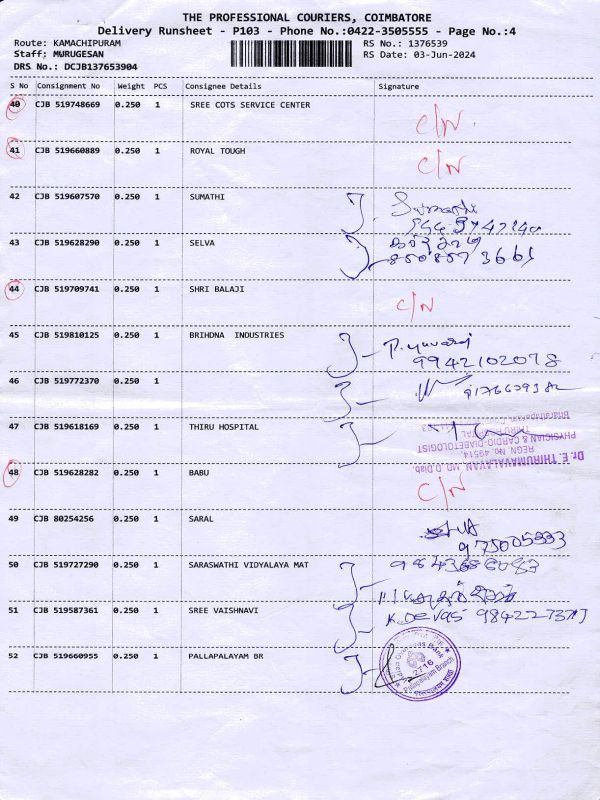 THE PROFESSIONAL COURIERS, COIMBATORE
Delivery Runsheet - P103 - Phone No.:0422-3505555 - Page No.:4
Route: KAMACHIPURAM RS No.: 1376539
Staff: MURUGESAN RS Date: 03-Jun-2024
DRS No.: DCJB137653904
S No Consignment No Weight PCS Consignee Details Signature
40 CJB 519748669 0.250 1 SREE COTS SERVICE CENTER C/N
41 CJB 519660889 0.250 1 ROYAL TOUGH C/N
42 CJB 519607570 0.250 1 SUMATHI Sumathi
43 CJB 519628290 0.250 1 SELVA
44 CJB 519709741 0.250 1 SHRI BALAJI C/N
45 CJB 519810125 0.250 1 BRIHDNA INDUSTRIES P. yuvaraj
9942102078
46 CJB 519772370 0.250 1
47 CJB 519618169 0.250 1 THIRU HOSPITAL
Dr. E. THIRUMAVALAVAN, MD., D.Diab
REGN No. 49514
PHYSICIAN & CARDIO-DIABETOLOGIST
THIRU HOSPITAL
48 CJB 519628282 0.250 1 BABU C/N
49 CJB 80254256 0.250 1 SARAL
50 CJB 519727290 0.250 1 SARASWATHI VIDYALAYA MAT
51 CJB 519587361 0.250 1 SREE VAISHNAVI K. Devas
52 CJB 519660955 0.250 1 PALLAPALAYAM BR
Indian Overseas Bank
2716
Pallapalayam Branch